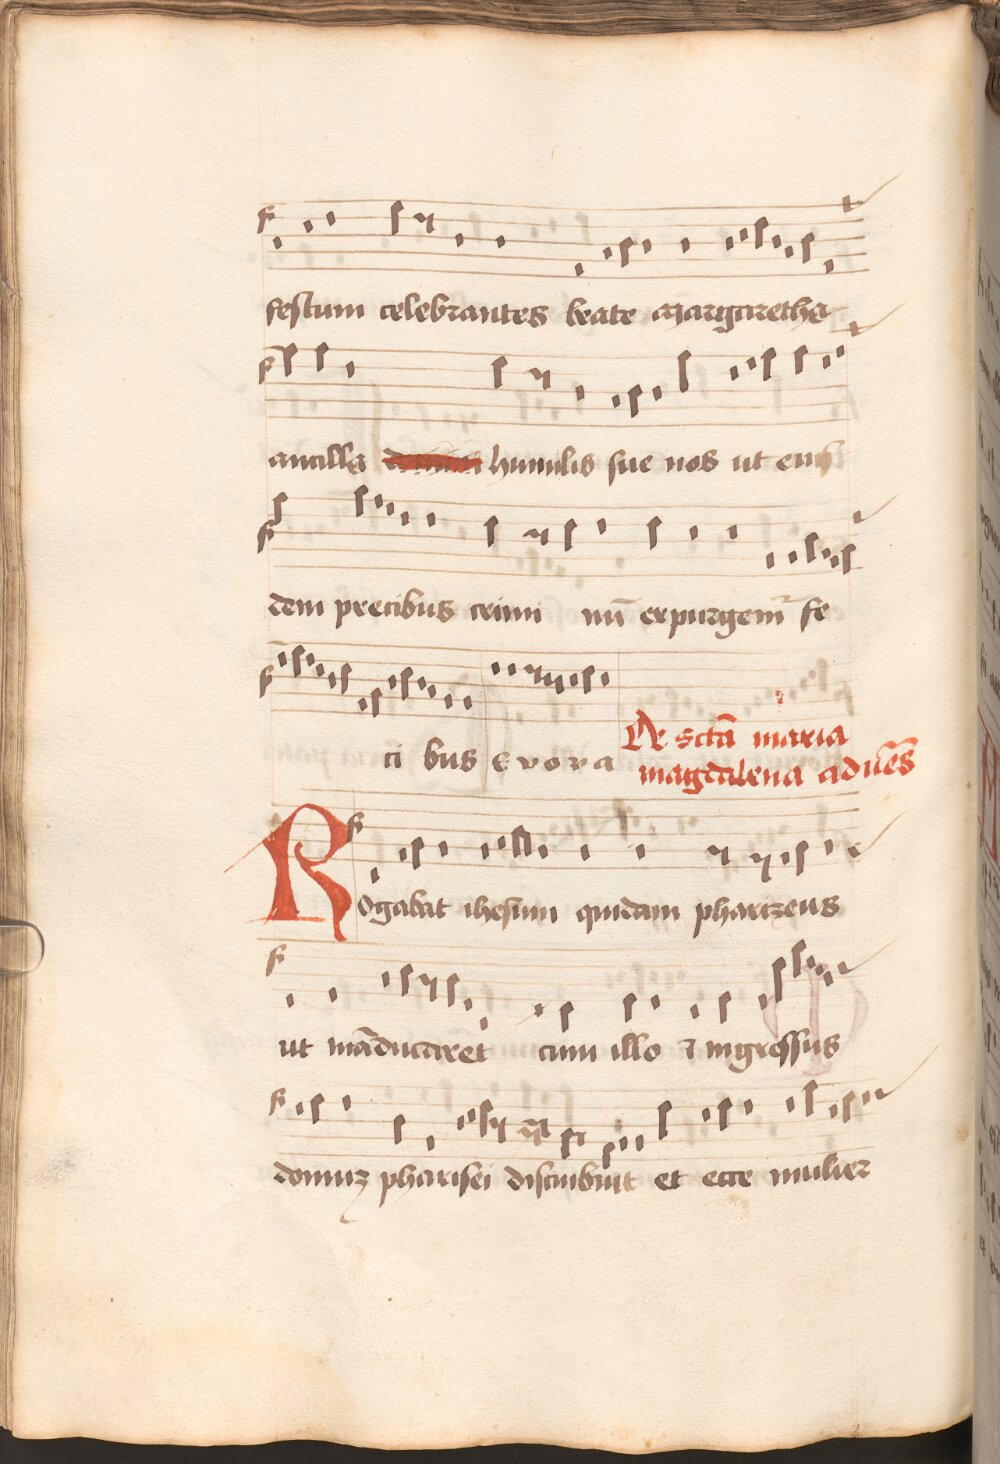 festum celebrantes beate margarethe
ancilla humilis sue nos ut eius
dem precibus crimi nū expurgem᷑ fe
ci bus Evova
De sctā maria
magdalena ad uēs
Rogabat ihesum quidam phariseus
ut māducaret cum illo ⁊ ingressus
domuȝ pharisei discubuit et ecce mulier